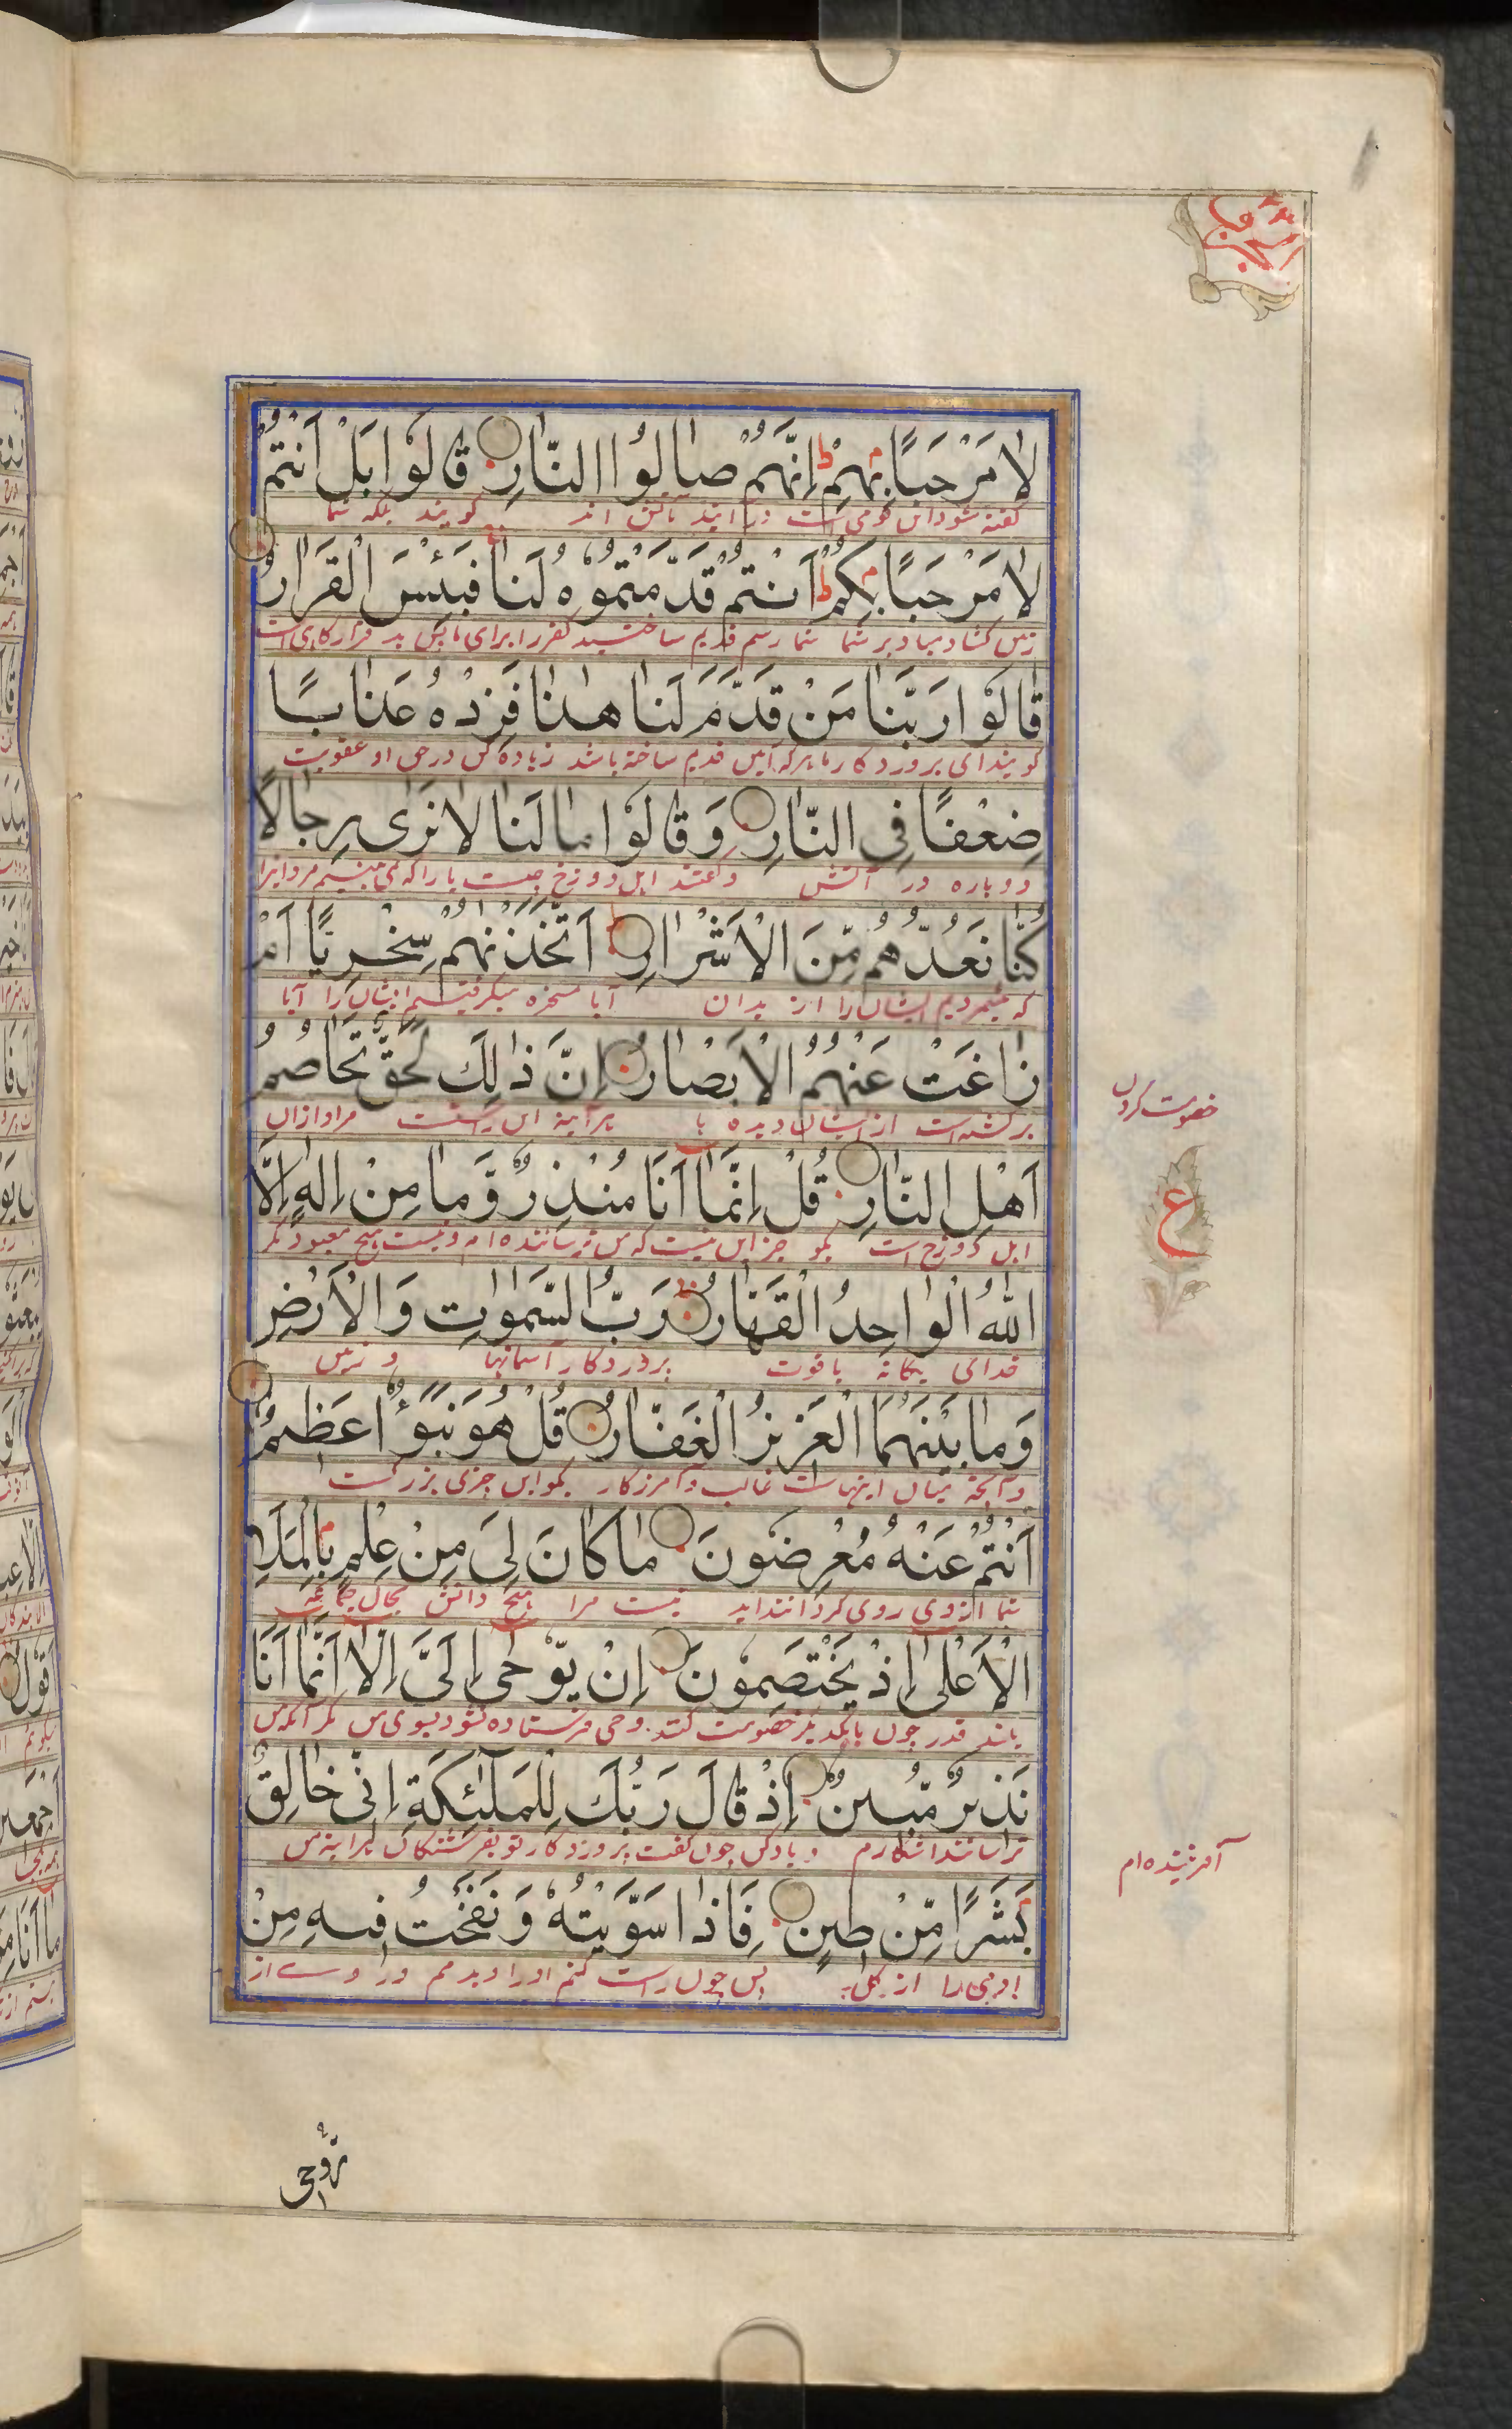 لَا مَرْحَبًا بِهِمْ ط اِنَّهُمْ صَالُوا النَّارِ قَالُوْا بَلْ اَنْتُمْ
گفته شود این قومی است در ایند بآتش اند گویند بلکه شما
لَا مَرْحَبًا بِكُمْ ط اَنْتُمْ قَدَّمْتُمُوْهُ لَنَا فَبِئْسَ الْقَرَارُ
زمین کشاده مباد بر شما شما رسم قدیم ساختید کفر را برای ما پس بد قرارگاهی است
قَالُوْا رَبَّنَا مَنْ قَدَّمَ لَنَا هٰذَا فَزِدْهُ عَذَابًا
گویند ای پروردگار ما هرکه این قدیم ساخته باشد زیاده کن در حق او عقوبت
ضِعْفًا فِي النَّارِ وَقَالُوْا مَا لَنَا لَا نَرٰى رِجَالًا
دوباره در آتش و گفتند اهل دوزخ چیست ما را که نمی بینیم مردانرا
كُنَّا نَعُدُّهُمْ مِّنَ الْاَشْرَارِ اَتَّخَذْنٰهُمْ سِخْرِيًّا اَمْ
که میشمردیم ایشان را از بدان آیا مسخره میگرفتیم ایشان را آیا
زَاغَتْ عَنْهُمُ الْاَبْصَارُ اِنَّ ذٰلِكَ لَحَقٌّ تَخَاصُمُ
برگشته است از ایشان دیده ها هرآینه این راست مراد ازان
خصومت کردن
اَهْلِ النَّارِ قُلْ اِنَّمَا اَنَا مُنْذِرٌ وَّمَا مِنْ اِلٰهٍ اِلَّا
اهل دوزخ است بگو جز این نیست که من ترساننده ام و نیست هیچ معبود مگر
ع
اللّٰهُ الْوَاحِدُ الْقَهَّارُ رَبُّ السَّمٰوٰتِ وَالْاَرْضِ
خدای یگانه باقوت پروردگار آسمانها و زمین
وَمَا بَيْنَهُمَا الْعَزِيْزُ الْغَفَّارُ قُلْ هُوَ نَبَؤٌا عَظِيْمٌ
و آنچه میان اینهاست غالب و آمرزگار بگو این چیزی بزرگست
اَنْتُمْ عَنْهُ مُعْرِضُوْنَ مَا كَانَ لِيَ مِنْ عِلْمٍ بِالْمَلَاِ
شما از وی روی گردانندہ اید نیست مرا هیچ دانش بحال جماعه
الْاَعْلٰى اِذْ يَخْتَصِمُوْنَ اِنْ يُّوْحٰى اِلَيَّ اِلَّا اَنَّمَا اَنَا
بلند قدر چون بایکدیگر خصومت کنند وحی فرستاده نشود بسوی من مگر آنکه من
نَذِيْرٌ مُّبِيْنٌ اِذْ قَالَ رَبُّكَ لِلْمَلٰٓئِكَةِ اِنِّيْ خَالِقٌ
ترسانندہ اشکارم و یاد کن چون گفت پروردگار تو بفرشتگان هرآینه من
آفریننده ام
بَشَرًا مِّنْ طِيْنٍ فَاِذَا سَوَّيْتُهٗ وَنَفَخْتُ فِيْهِ مِنْ
ادمی را از گل پس چون راست کنم اورا و بدمم در وے از
رُّوْحِيْ